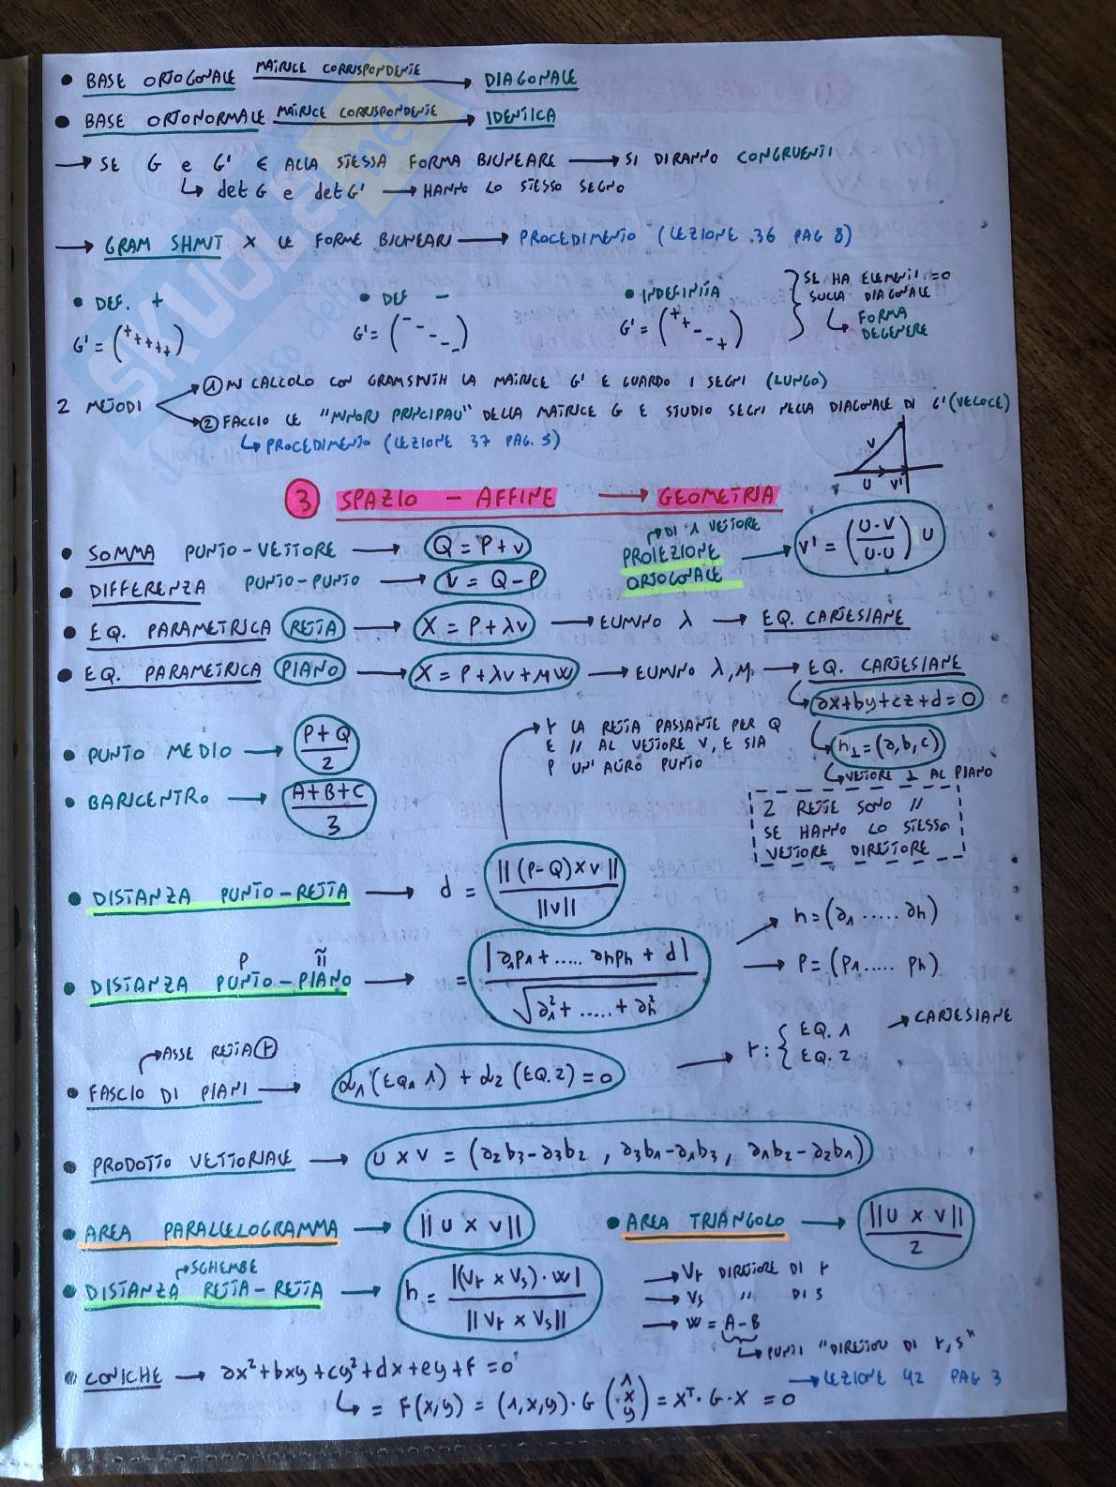 • BASE ORTOGONALE MATRICE CORRISPONDENTE → DIAGONALE
• BASE ORTONORMALE MATRICE CORRISPONDENTE → IDENTICA
→ SE G e G' ∈ ALLA STESSA FORMA BILINEARE → SI DIRANNO CONGRUENTI
↳ det G e det G' → HANNO LO STESSO SEGNO
→ GRAM SHMIT X LE FORME BILINEARI → PROCEDIMENTO (LEZIONE 36 PAG 8)
• DEF. + • DEF - • INDEFINITA
G' = (+++++) G' = (-- --) G' = (++--+)
SE HA ELEMENTI =0
SULLA DIAGONALE
↳ FORMA
DEGENERE
2 METODI
→ ① MI CALCOLO CON GRAMSMITH LA MATRICE G' E GUARDO I SEGNI (LUNGO)
→ ② FACCIO LE "MINORI PRINCIPALI" DELLA MATRICE G E STUDIO SEGNI NELLA DIAGONALE DI G' (VELOCE)
↳ PROCEDIMENTO (LEZIONE 37 PAG. 5)
V
U V'
③ SPAZIO - AFFINE → GEOMETRIA
• SOMMA PUNTO-VETTORE → Q = P + v
• DIFFERENZA PUNTO-PUNTO → V = Q - P
DI 1 VETTORE
PROIEZIONE
ORTOGONALE → V' = (U·V / U·U) U
• EQ. PARAMETRICA (RETTA) → X = P + λv → ELIMINO λ → EQ. CARTESIANE
• EQ. PARAMETRICA (PIANO) → X = P + λv + μw → ELIMINO λ, μ. → EQ. CARTESIANE
↳ ax+by+cz+d=0
↳ n⊥=(a,b,c)
↳ VETORE ⊥ AL PIANO
• PUNTO MEDIO → P+Q / 2
→ r LA RETTA PASSANTE PER Q
E // AL VETTORE V, E SIA
P UN'ALTRO PUNTO
• BARICENTRO → A+B+C / 3
2 RETTE SONO //
SE HANNO LO STESSO
VETTORE DIRETTORE
• DISTANZA PUNTO-RETTA → d = ||(P-Q)×v|| / ||v||
P π̃
• DISTANZA PUNTO-PIANO → = |a₁p₁+.....anpn + d| / √a₁²+.....+an²
→ n=(a₁.....an)
→ P=(p₁.....pn)
→ ASSE RETTA (r)
• FASCIO DI PIANI → α₁(EQ. 1) + α₂(EQ.2) = 0
→ r: { EQ. 1
EQ. 2
→ CARTESIANE
• PRODOTTO VETTORIALE → U × V = (a₂b₃-a₃b₂ , a₃b₁-a₁b₃, a₁b₂-a₂b₁)
• AREA PARALLELOGRAMMA → ||U × V||
• AREA TRIANGOLO → ||U × V|| / 2
→ SGHEMBE
• DISTANZA RETTA-RETTA → h = |(Vr × Vs)·w| / ||Vr × Vs||
→ Vr DIRETTORE DI r
→ Vs // DI S
→ W = A-B
↳ PUNTI "DIRETTORI DI r,s"
• CONICHE → ax²+bxy+cy²+dx+ey+f=0
→ LEZIONE 42 PAG 3
↳ = F(x,y) = (1,x,y)·G (1 x y) = Xᵀ·G·X = 0